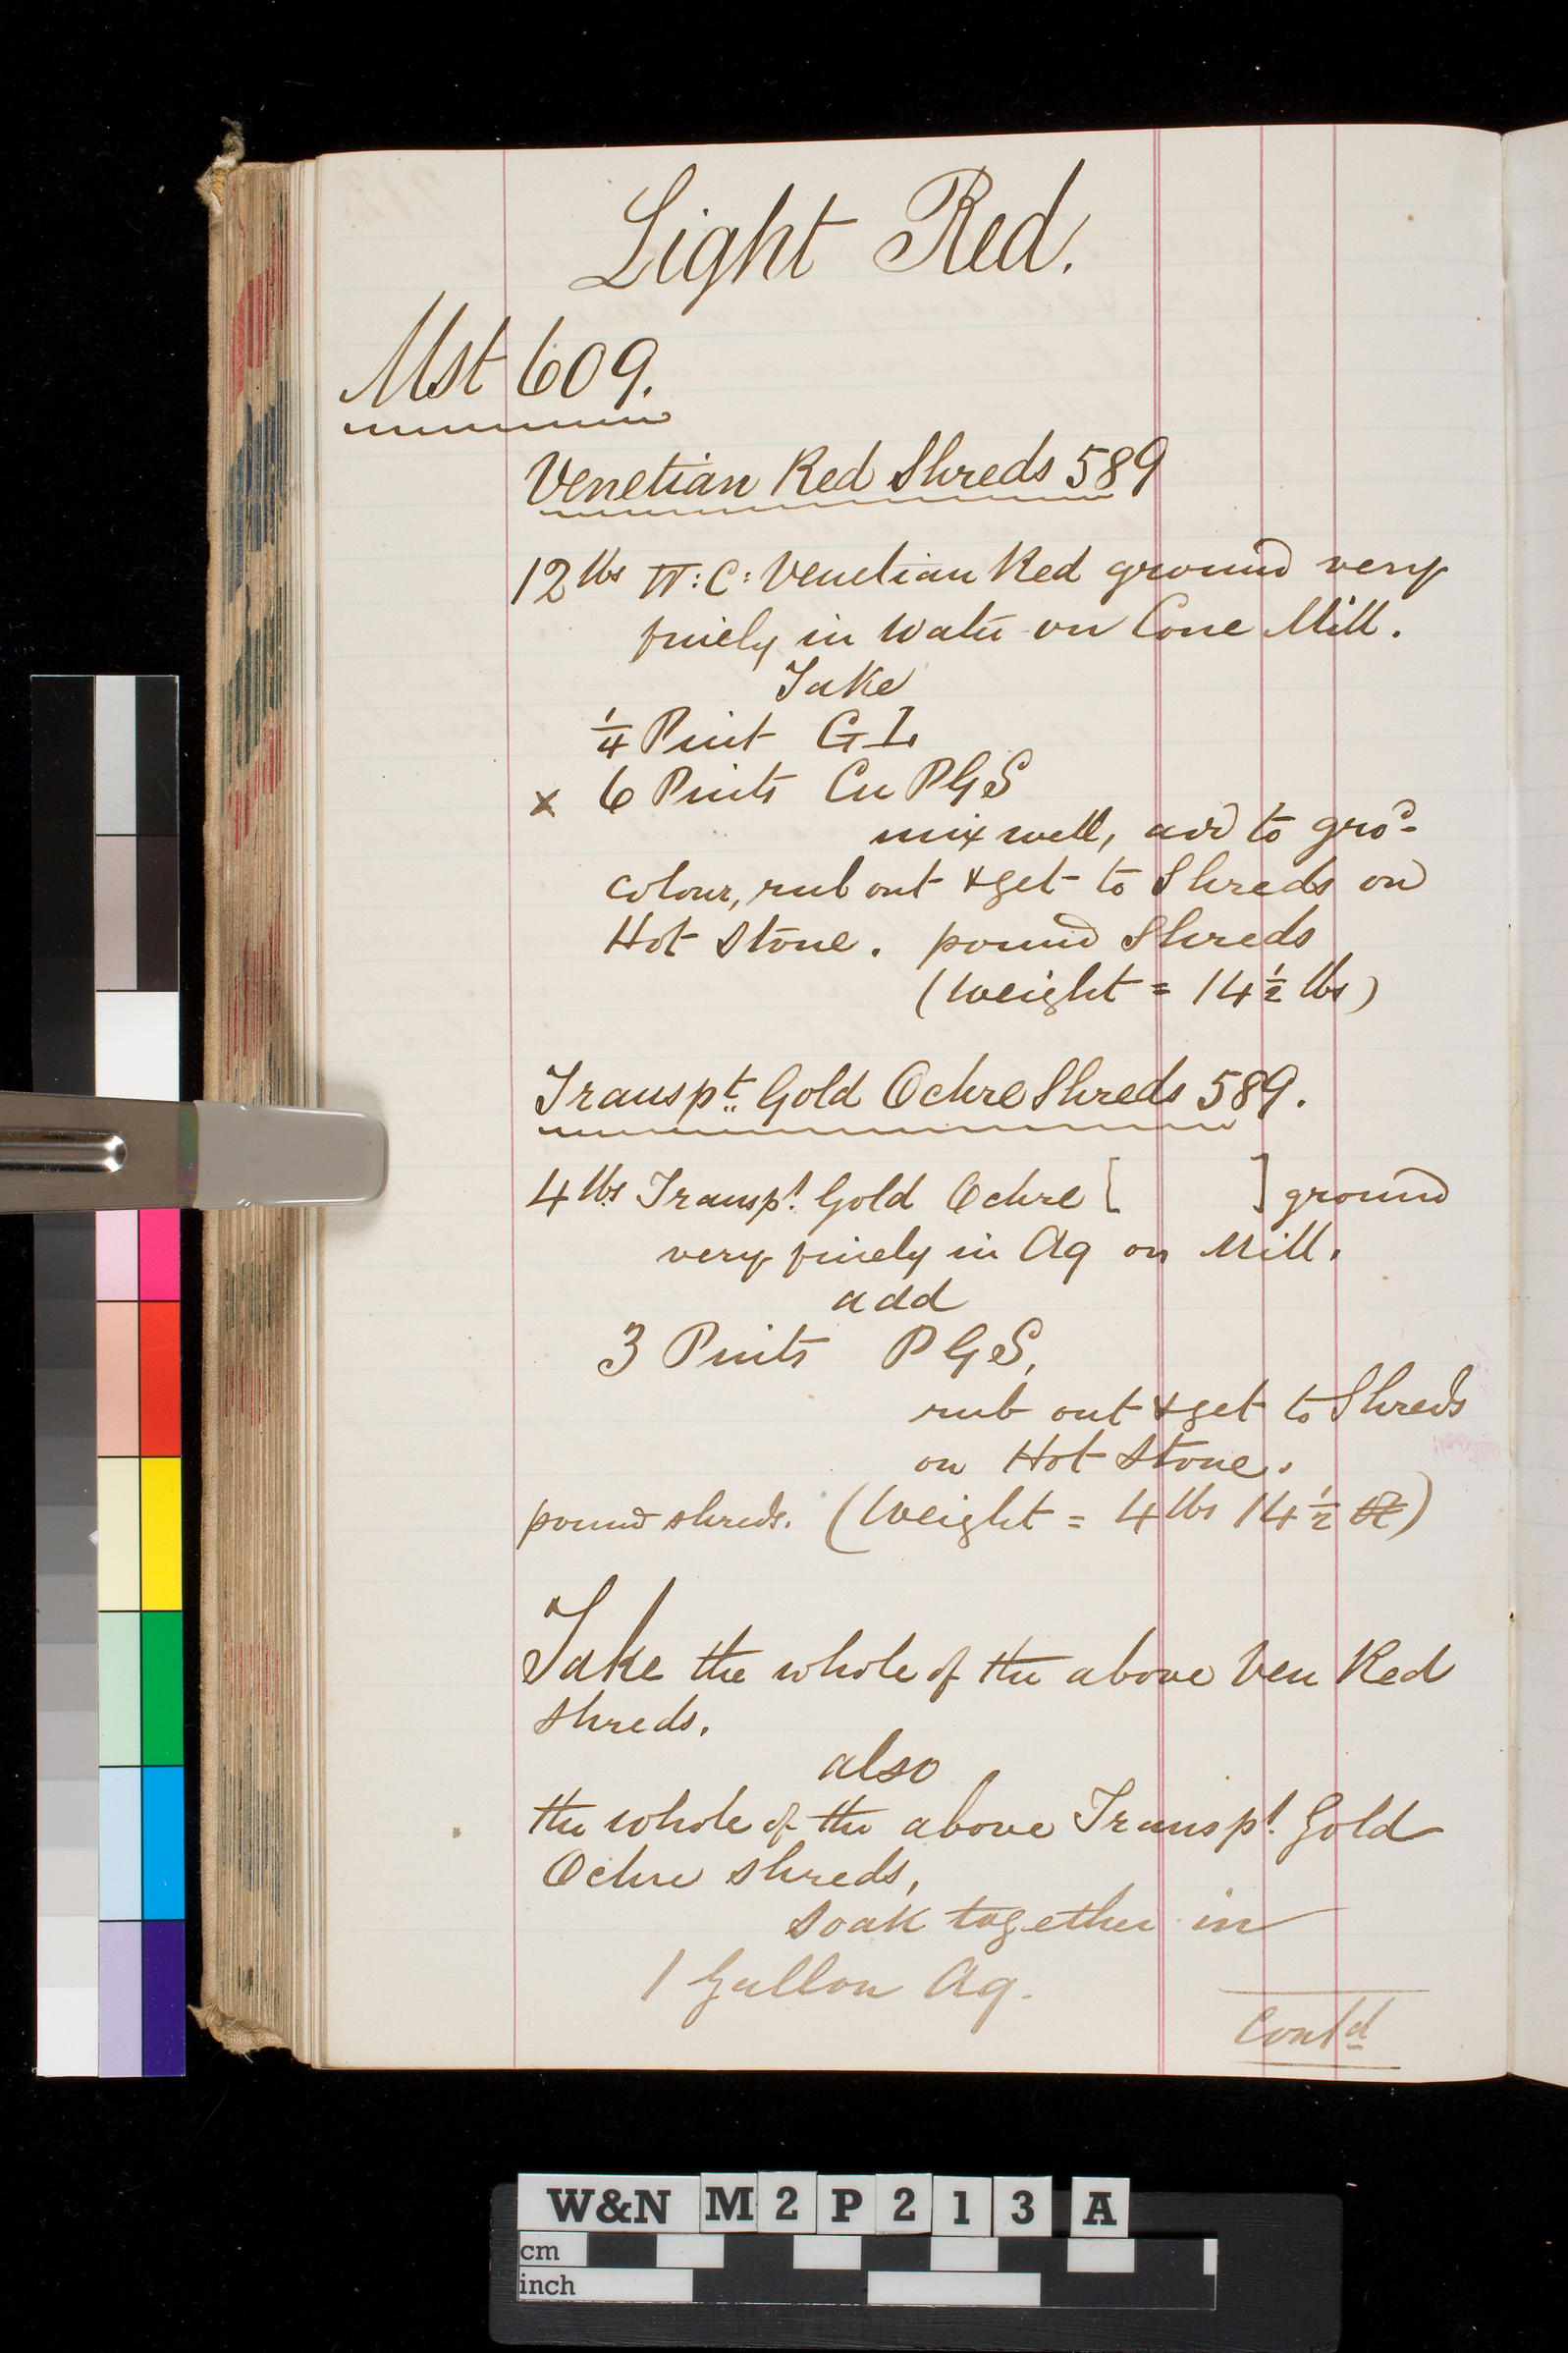 Light Red.
Mst 609.
Venetian Red Shreds 589
12 lbs TT: C: Venetian Red ground very
finely in water on Cone Mill.
Take
1/4 Pint GL
x 6 Pints Cu PGS
mix well, add to grod
colour, rub out & get to Shreds on
Hot Stone. pound Shreds
(Weight = 14 1/2 lbs)
Transpt Gold Ochre Shreds 589.
4 lbs Transpt. Gold Ochre [ ] ground
very finely in Aq on Mill.
add
3 Pints PGS,
rub out & get to Shreds
on Hot Stone.
pound shreds. (Weight = 4 lbs 14 1/2 oz)
Take the whole of the above Ven Red
shreds.
also
the whole of the above Transpt. Gold
Ochre shreds,
soak together in
1 Gallon Aq.
Contd
W&N M2P213A
cm
inch